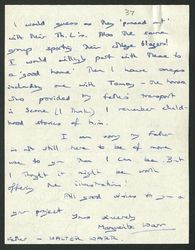 37
I would guess as they 'passed out'
with their Th.L.'s. Also the same
group sporting their college blazers!
I would willingly part with these to
a 'good home'. Then I have snaps
including one with Tommy - the horse
who provided my father's transport
in Scone (I think). I remember child-
hood stories of him.
I am sorry my Father
is not still here to be of more
use to you than I can be. But
I thought it might be worth
offering the illustrations!
All good wishes to you &
your project
Yours sincerely
Marguerite Warr
Father = WALTER WARR